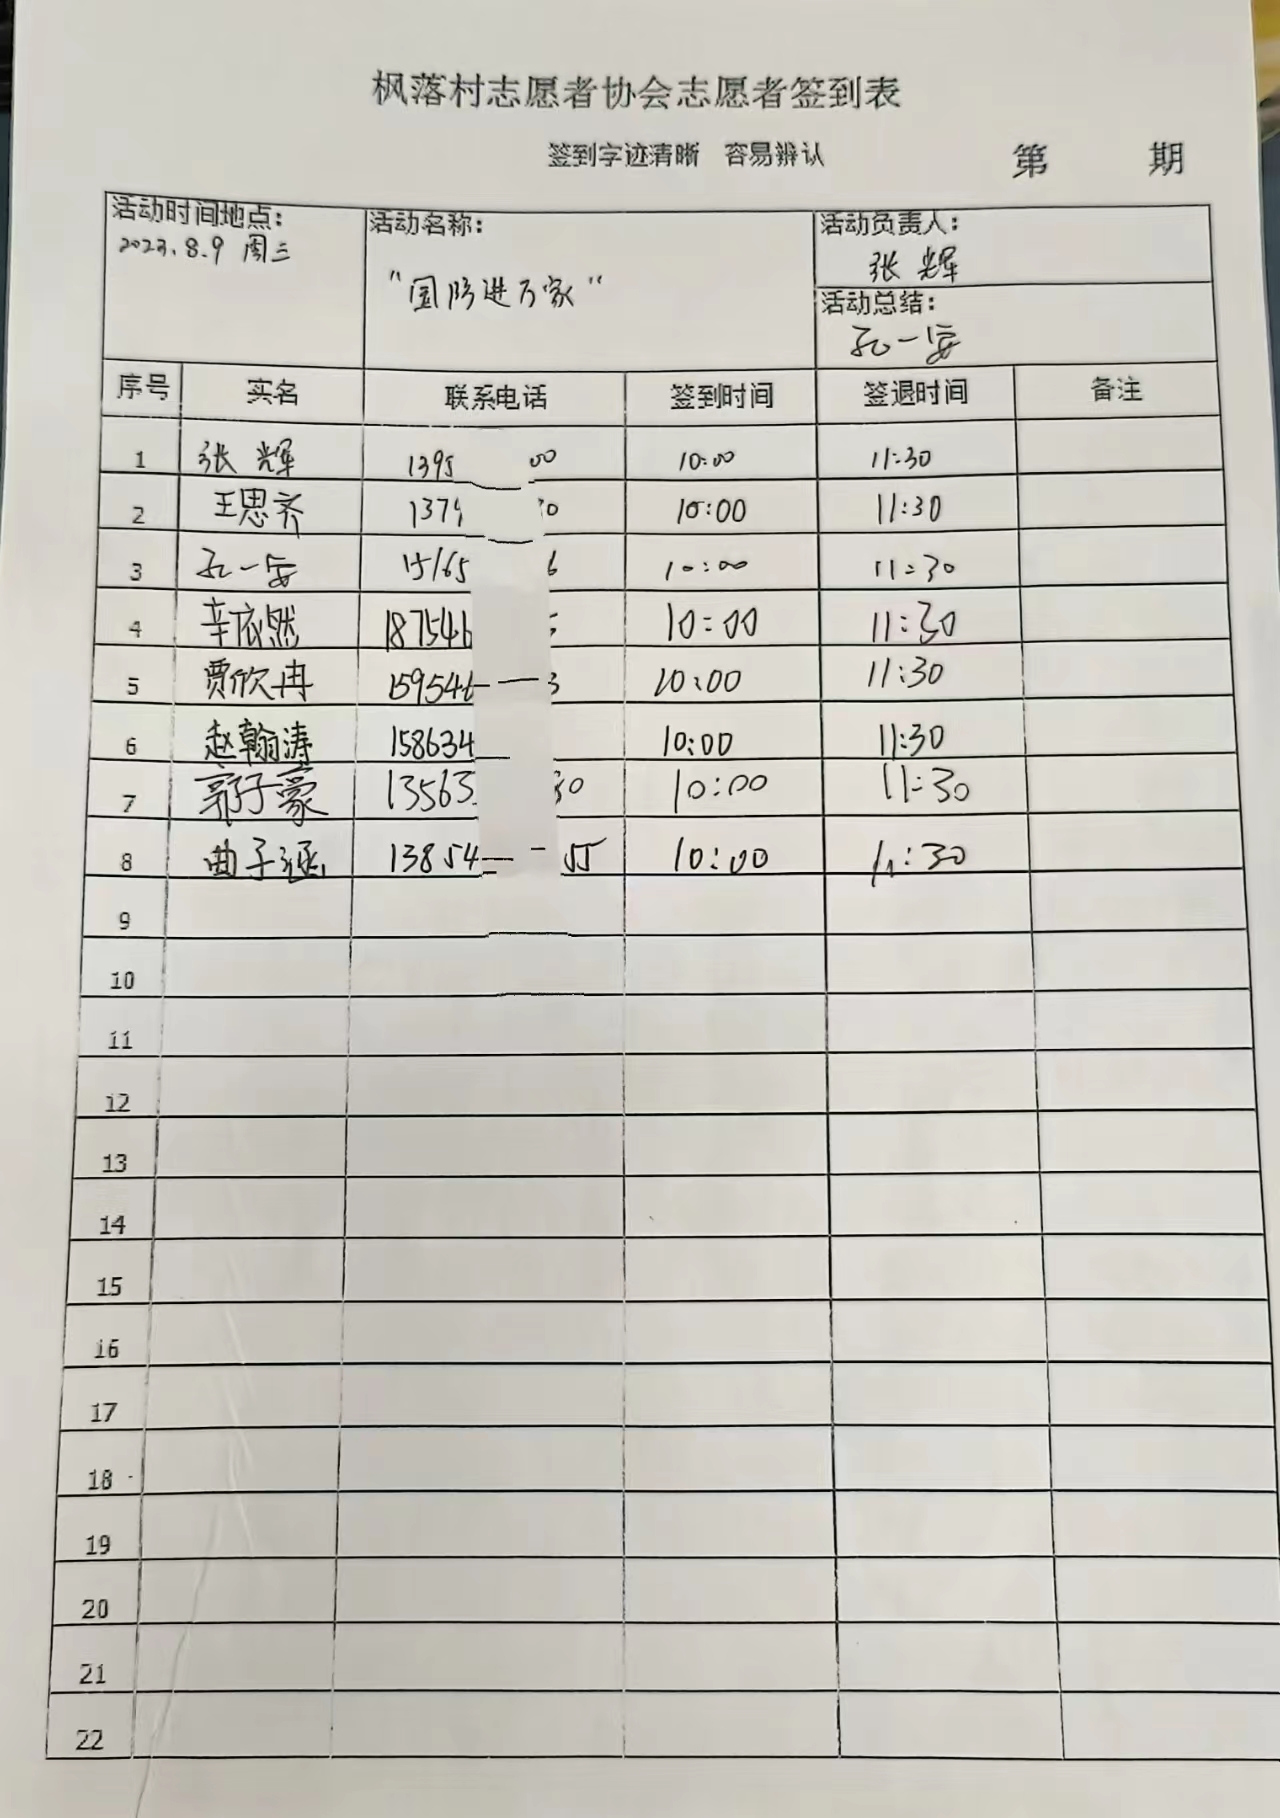 枫落村志愿者协会志愿者签到表
签到字迹清晰 容易辨认 第 期
活动时间地点: 活动名称: 活动负责人:
2023.8.9 周三 "国防进万家" 张辉
活动总结:
孔一安
序号 实名 联系电话 签到时间 签退时间 备注
1 张辉 1395 00 10:00 11:30
2 王思齐 1379 0 10:00 11:30
3 孔一安 15165 6 10:00 11:30
4 辛依然 187546 5 10:00 11:30
5 贾欣冉 159546 3 10:00 11:30
6 赵翰涛 158634 10:00 11:30
7 郭子豪 13563 30 10:00 11:30
8 曲子涵 13854 55 10:00 11:30
9
10
11
12
13
14
15
16
17
18
19
20
21
22